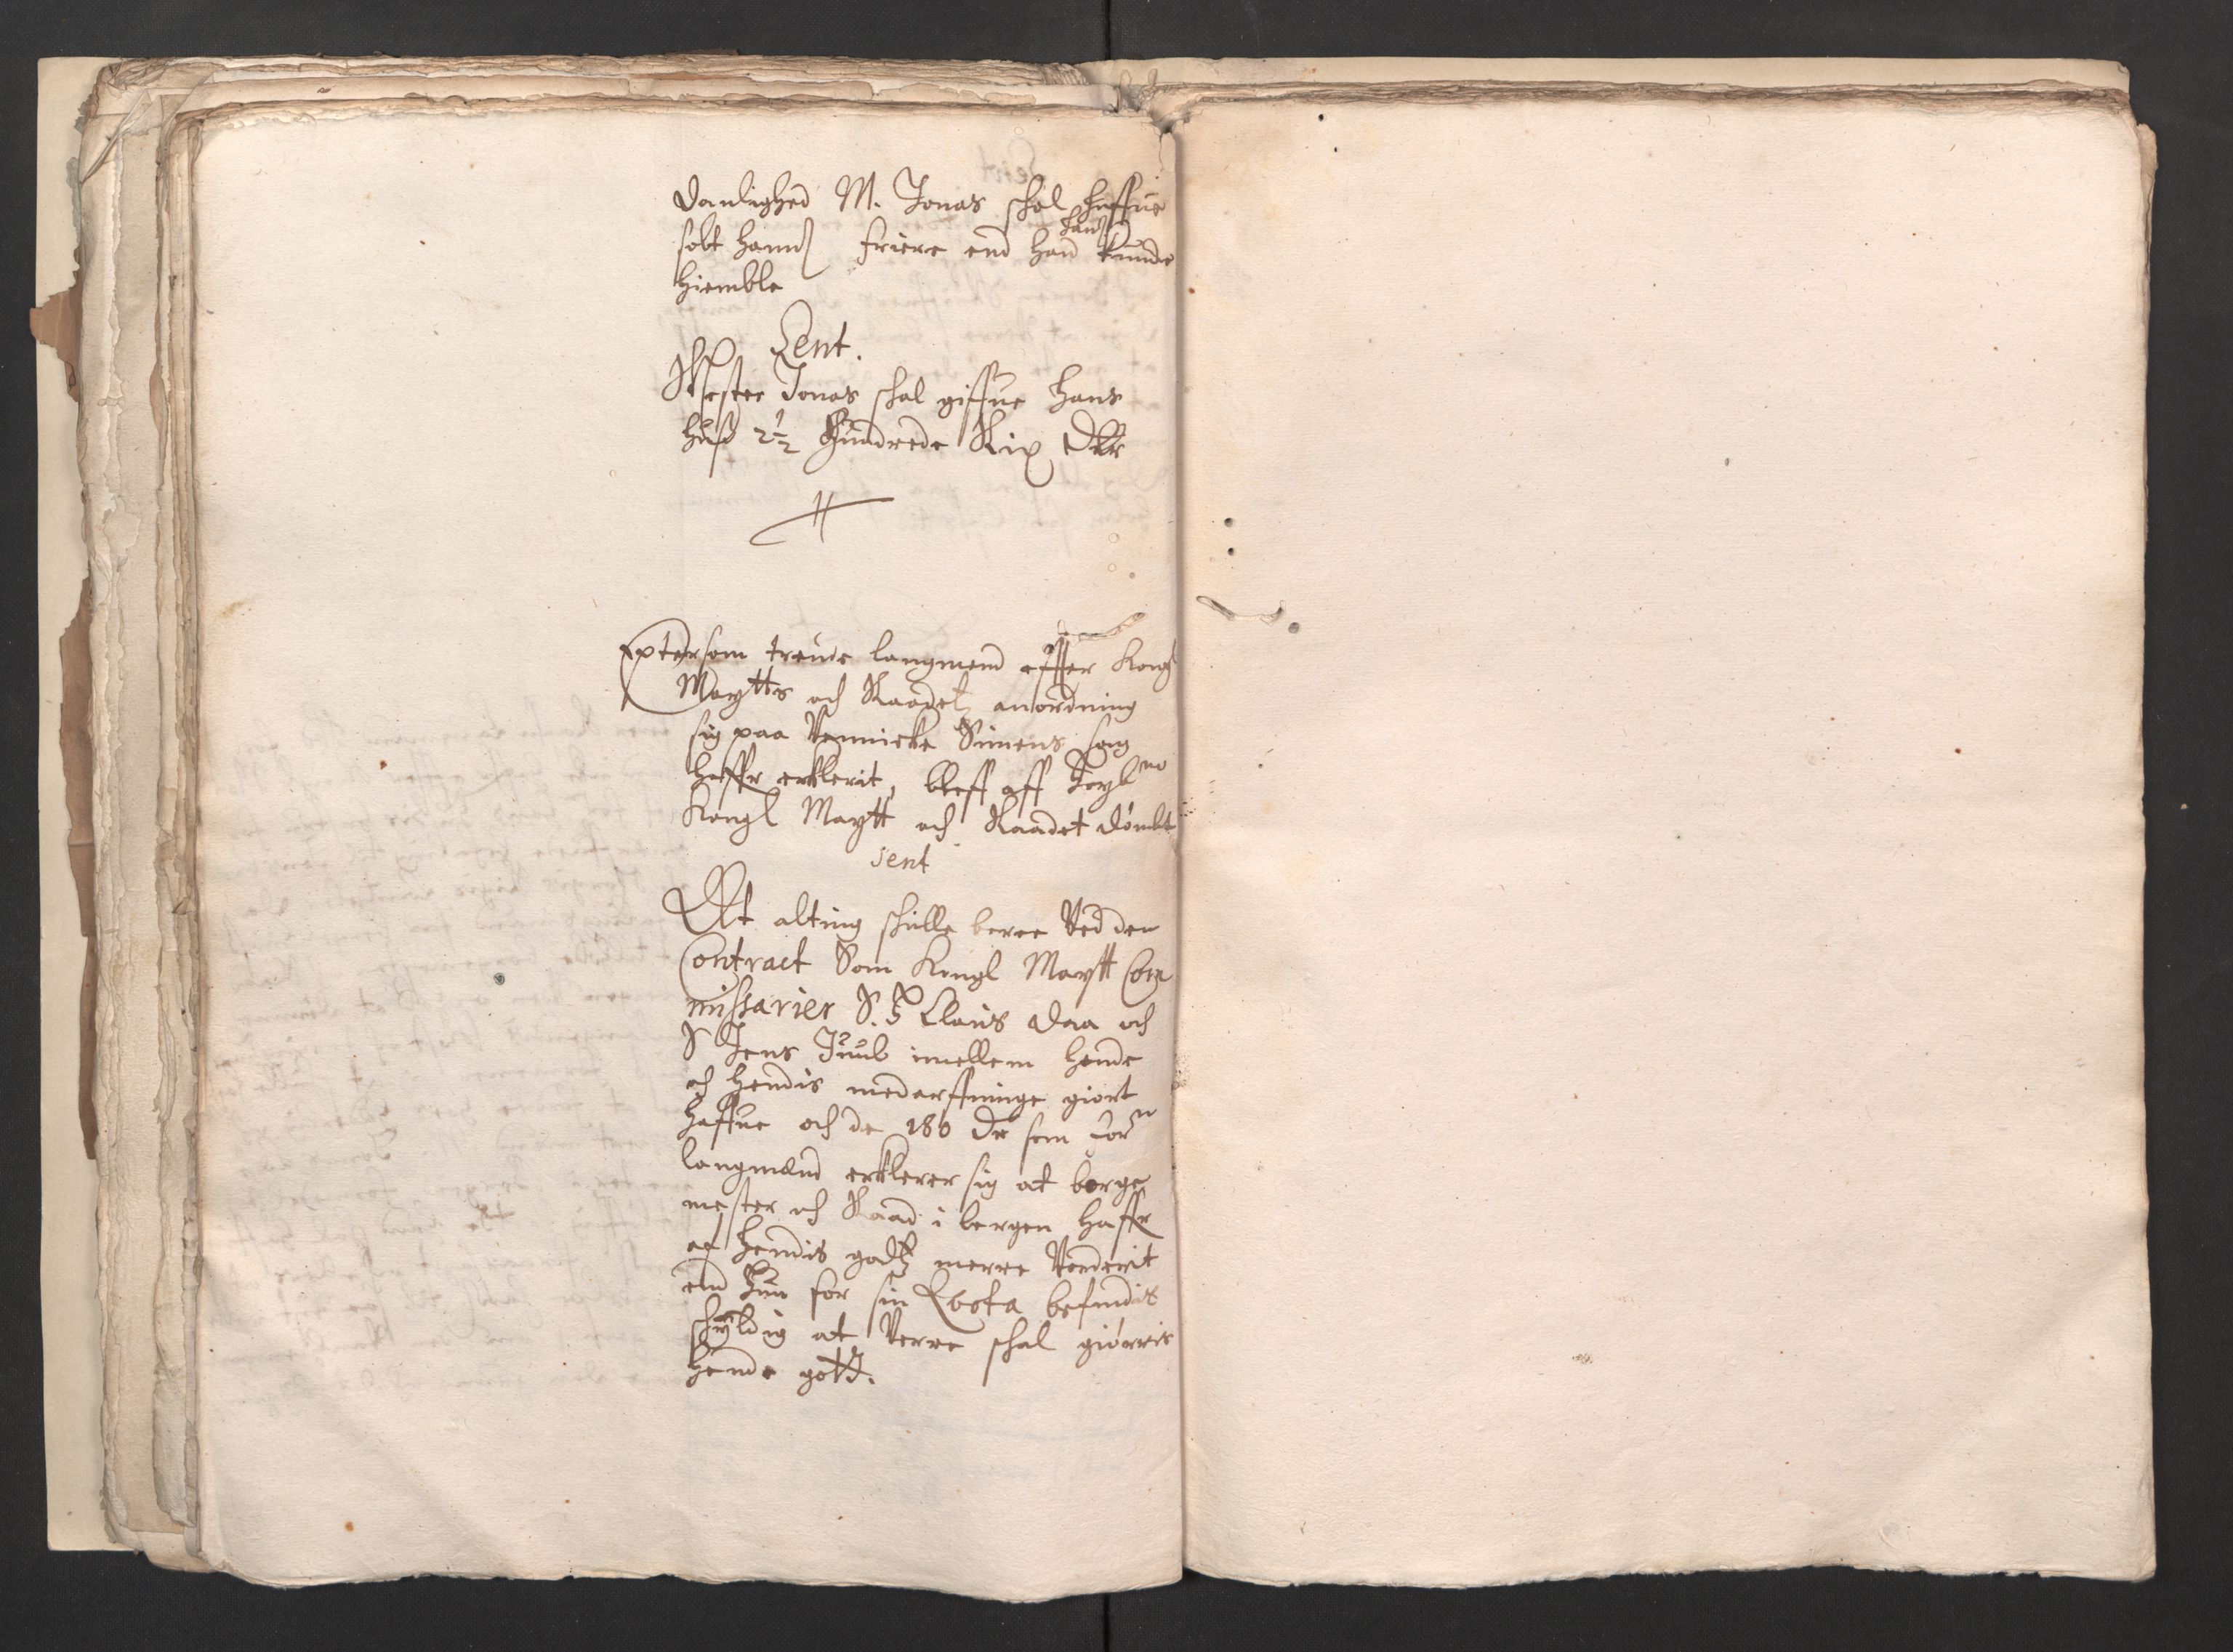 danlighed M. Jonas schal haffue
solt hannd friere end hand kunde
hand
hiemble
Sent.
Mester Jonas schal giffue Hans
huß 2½ Hundrede Rix dlr
Epter som trende langmend effter Kongl
Maytts och Raadetz anordning
sig paa Vennicke Simens sag
haffr erklerit, bleff aff Høybno
Kongl Maytt och Raadet dømbt
sent
At alting schulle bere ved den
Contract Som Kongl Maytt Com
missarier S. H Claus Daa och
S Jens Juul imellem hende
och hendis medarffuinge giort
haffue och de 180 dr som forn
langmænd erklerer sig at borge
mester och Raad i bergen haffr
af hendis godtz merre vorderit
end hun for sin Qvota befindis
schyldig at verre schal giørris
hende gott.